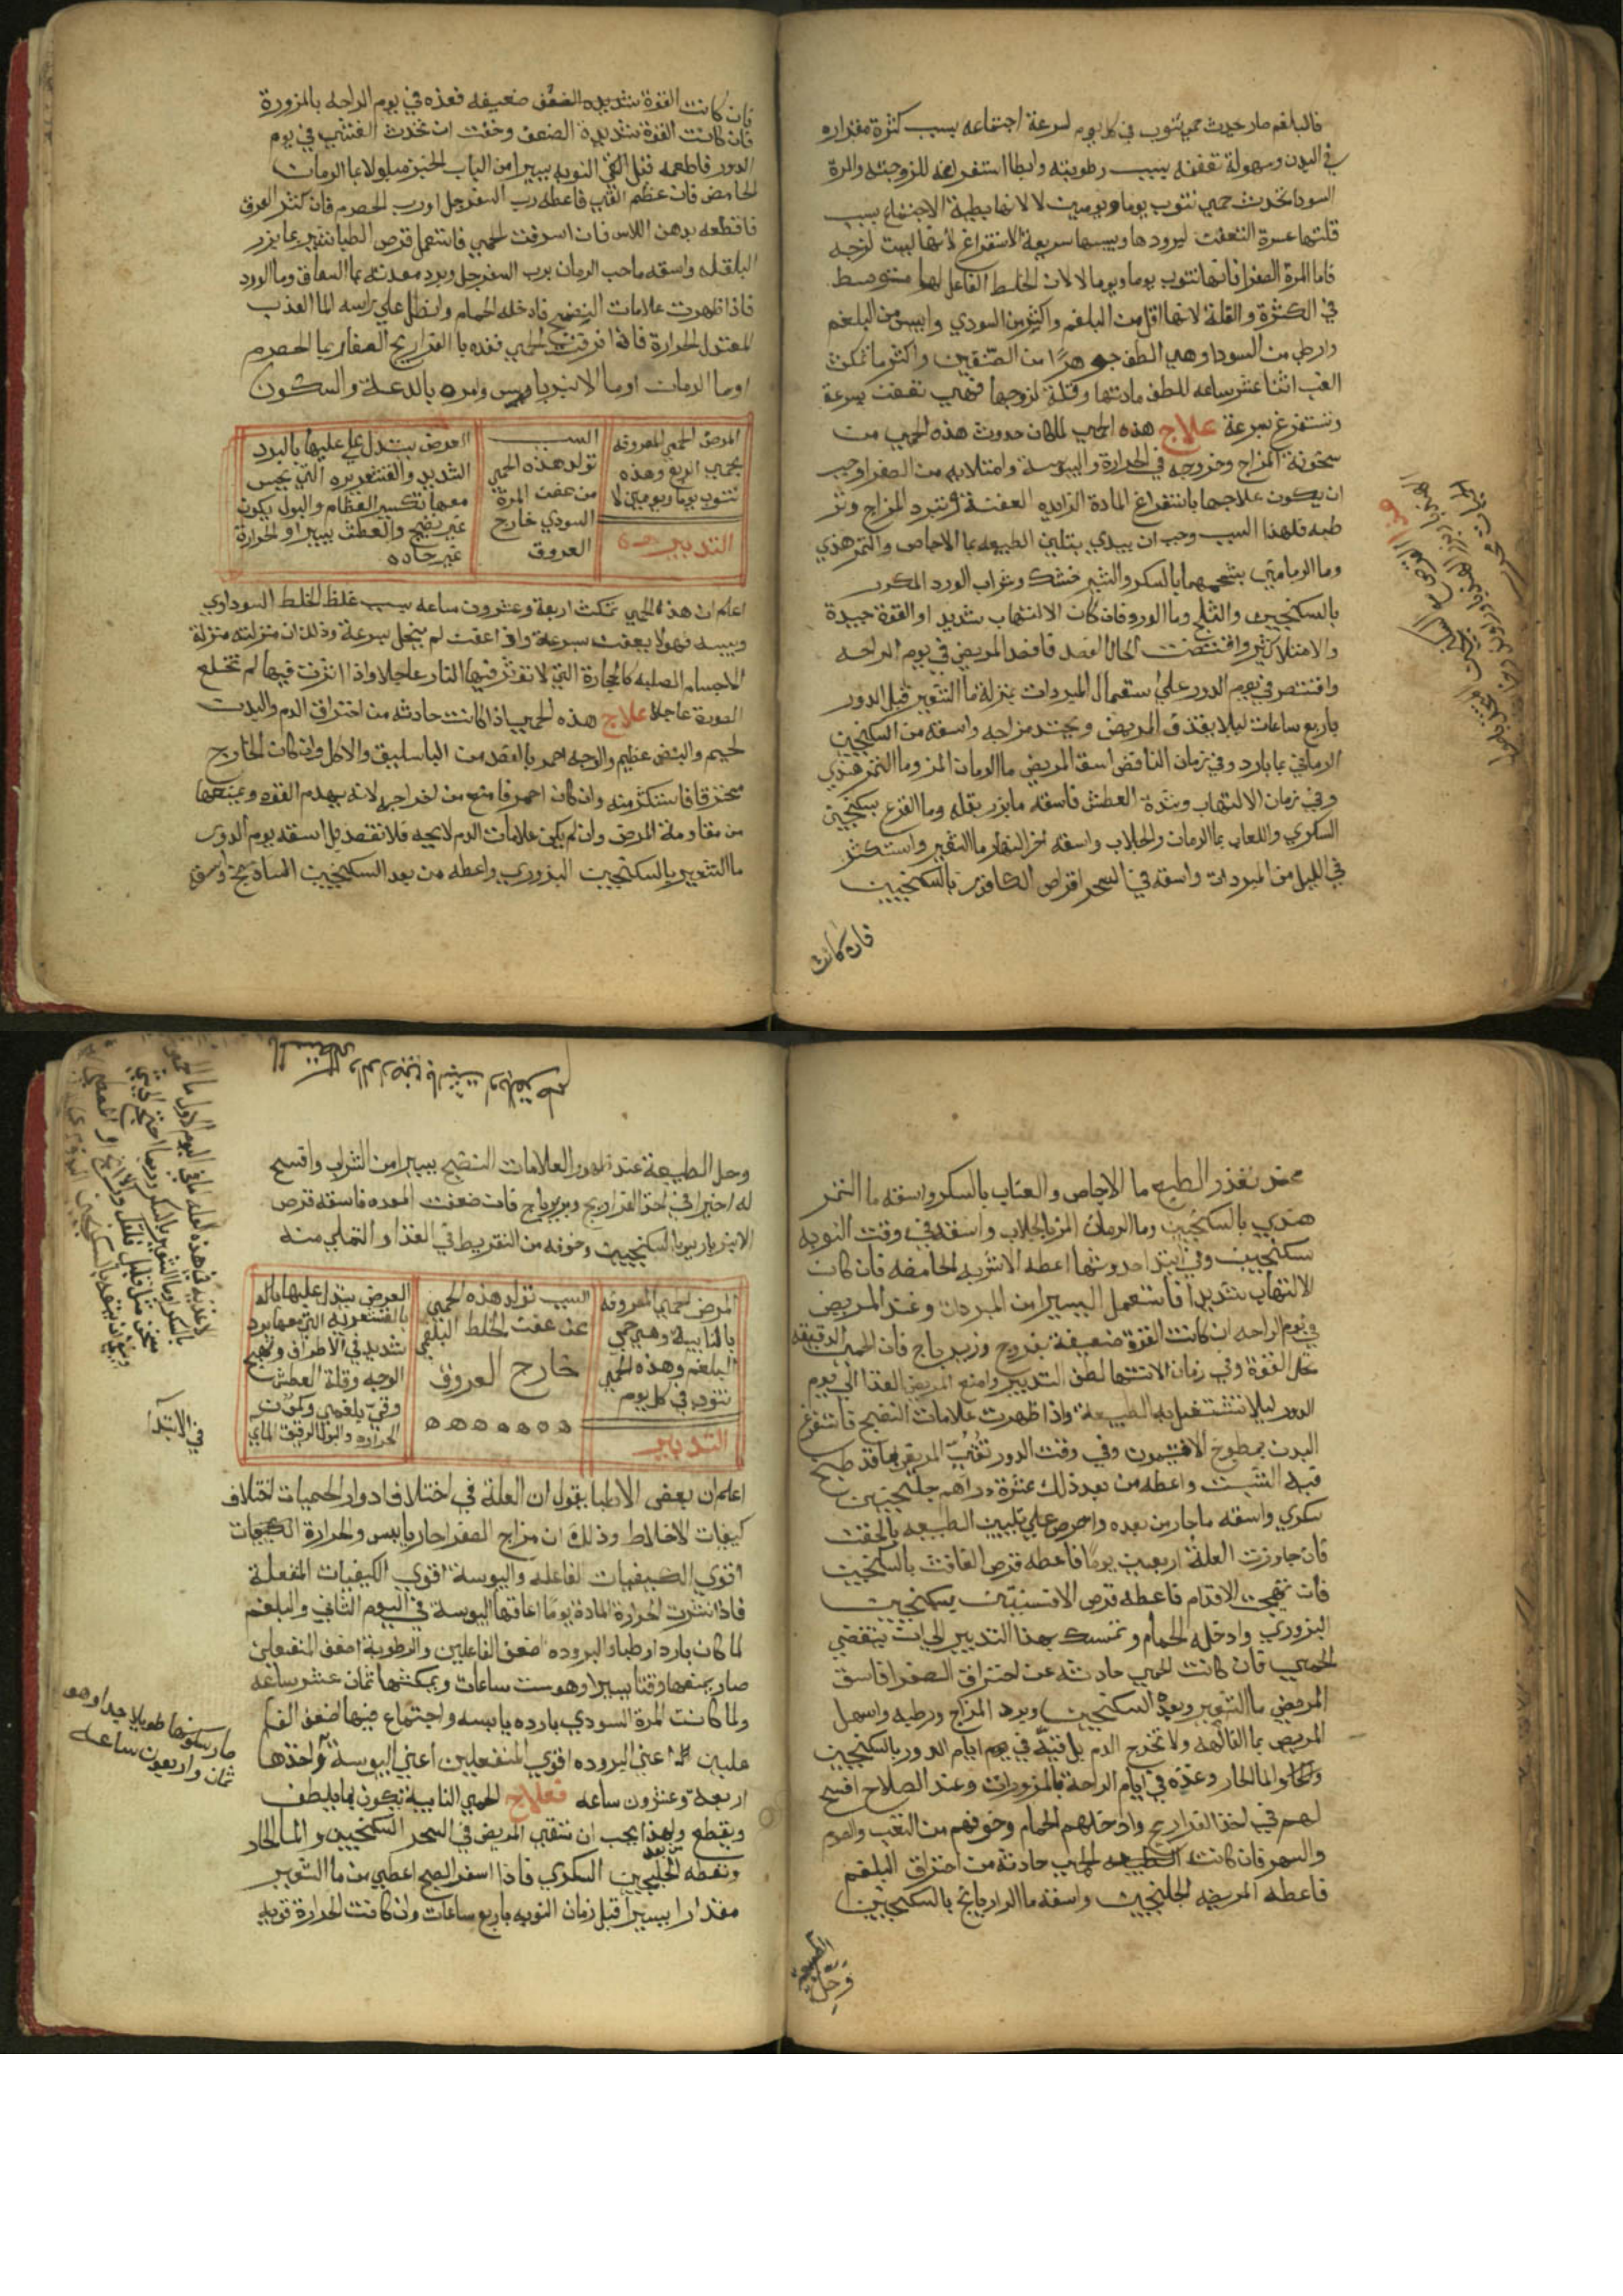 فالبلغم صار حدث حمي تنوب في كل يوم لسرعة اجتماعه بسبب كثرة مقداره
في البدن وسهولة تعفنه بسبب رطوبته وابطا استفراغه للزوجته والمرة
السودا تحدث حمي تنوب يوما ويومين لا لانها بطية الاجتماع بسبب
قلتها عسرة التعفن لبرودها ويبسها سريعة الاستفراغ لانها ليست لزجه
فاما المرة الصفرا فانها تنوب يوما ويوما لا لان الخلط الفاعل لها متوسط
في الكثرة والقلة لانها اقل من البلغم واكثر من السودي وايبس من البلغم
وارطب من السودا وهي الطف جوهرا من الصنفين واكثر ما تمكث
الغب اثنا عشر ساعه للطف مادتها وقلة لزوجها فهي تعفن بسرعة
وتستفرغ بسرعة علاج هذه الحمي لما كان حدوث هذه الحمي من
سخونة المزاج وخروجه في الحرارة واليبوسة وامتلايه من الصفرا وجب
ان يكون علاجها باستفراغ المادة الزايده العفنة وتبرد المزاج وتر
طبه فلهذا السبب وجب ان يبدي بتليين الطبيعه بما الاجاص والتمر هندي
وما الرمانين بشحمهما بالسكر والشير خشك وشراب الورد المكرر
بالسكنجبين والثلج وما الورد فان كان الالتهاب شديد او القوة جيدة
والامتلا كثير واقتضت الحال الفصد فافصد المريض في يوم الراحه
واقتصر في يوم الدور علي استعمال المبردات بمنزلة ما الشعير قبل الدور
باربع ساعات ليلا يقذف المريض ويحتد مزاجه واسقه من السكنجبين
الرماني بما بارد وفي زمان النافض اسق المريض ما الرمان المز وما التمر هندي
وفي زمان الالتهاب وشدة العطش فاسقه ما بزر بقله وما القرع بسكنجبين
السكري واللعاب بما الرمان والجلاب واسقه اخر النهار ما الشعير واستكثر
في الليل من المبردات واسقه في السحر اقراص الكافور بالسكنجبين
فان كانت
فان كانت القوة شديده الضعف ضعيفه فغذه في يوم الراحه بالمزورة
فان كانت القوة شديدة الضعف وخفت ان تحدث الغشي في يوم
الدور فاطعمه قبل النوبه يسيرا من لباب الخبز مبلولا بما الرمان
الحامض فان عظم القي فاعطه رب السفرجل او رب الحصرم فان كثر العرق
فاقطعه بدهن الاس فان اسرفت الحمي فاستعمل قرص الطباشير بما بزر
البقله واسقه ما حب الرمان برب السفرجل وبرد معدته بما السماق وما الورد
فاذا ظهرت علامات النضج فادخله الحمام وانطل علي راسه الما العذب
المعتدل الحرارة فاذا فرقت الحمي فغذه بالفراريج الصغار بما الحصرم
او ما الرمان او ما الانبرباريس وامره بالدعة والسكون
المرض الحمي المعروفه
بحمي الربع وهذه
تنوب يوما ويومين لا
التدبير
السبب
تولد هذه الحمي
من عفن المرة
السودي خارج
العروق
العرض يستدل عليها بالبرد
الشديد والقشعريره التي يحس
معها بتكسير العظام والبول يكون
غير نضيج والعطش يسيرا والحرارة
غير حاده
اعلم ان هذه الحمي تمكث اربعة وعشرون ساعه بسبب غلظ الخلط السوداوي
ويبسه فهو لا يعفن بسرعة واذا عفن لم ينحل بسرعة وذلك ان منزلته منزلة
الاجسام الصلبه كالحجارة التي لا تؤثر فيها النار عاجلا واذا اثرت فيها لم تخلع
الصورة عاجلا علاج هذه الحمي اذا كانت حادثه من احتراق الدم والبدن
لحيم والنبض عظيم والوجه احمر بالفصد من الباسليق والاكحل وان كان الخارج
محترقا فاستكثر منه وان كان احمر فامتنع من اخراجه لانه يهدم القوه ويمنعها
من مقاومة المرض وان لم يكن علامات الدم لايحه فلا تفصد بل اسقه يوم الدور
ما الشعير بالسكنجبين البزوري واعطه من بعد السكنجبين
محمد تغذر الطبع ما الاجاص والعناب بالسكر واسقه ما التمر
هندي بالسكنجبين وما الرمان المز بالجلاب واسقه في وقت النوبه
سكنجبين وفي ابتدا حدوثها اعطه الاشربه الحامضه فان كان
الالتهاب شديدا فاستعمل اليسير من المبردات وغذ المريض
في يوم الراحه ان كانت القوة ضعيفة بفروج وزيرباج فان الحميه الدقيقه
تحل القوة وفي زمان الانتها لطف التدبير وامنع المريض الغذا الي يوم
الدور ليلا تشتغل به الطبيعة واذا ظهرت علامات النضج فاستفرغ
البدن بمطبوخ الافتيمون وفي وقت الدور تقيي المريض بما قد طبخ
فيه الشبت واعطه من بعد ذلك عشرة دراهم جلنجبين
سكري واسقه ما حار من بعده واحرص علي تليين الطبيعه بالحقن
فان جاوزت العلة اربعين يوما فاعطه قرص الغافت بالسكنجبين
فان تهيجت الاقدام فاعطه قرص الافسنتين بسكنجبين
البزوري وادخله الحمام وتمسك بهذا التدبير الي ان تنقضي
الحمي فان كانت الحمي حادثه عن احتراق الصفرا فاسق
المريض ما الشعير وبعده السكنجبين وبرد المزاج ورطبه واسهل
المريض بما الفاكهة ولا تخرج الدم بل قيه في يوم ايام الدور بالسكنجبين
والما الحار وغذه في ايام الراحة بالمزورات وعند الصلاح افسح
لهم في لحم الفراريج وادخلهم الحمام وخوفهم من التعب والصوم
والسهر فان كانت الحمي حادثه من احتراق البلغم
فاعطه المريض الجلنجبين واسقه ما الرازيانج بالسكنجبين
وحل الطبيعة
وحل الطبيعة عند ظهور العلامات النضج يسيرا من الشراب وافسح
له اخيرا في لحم الفراريج وزيرباج فان ضعفت المعده فاسقه قرص
الانبرباريس بالسكنجبين وخوفه من التفريط في الغذا والتملي منه
المرض الحمي المعروفه
بالنايبة وهي حمي
البلغم وهذه الحمي
تنوب في كل يوم
التدبير
السبب تولد هذه الحمي
عن عفن الخلط البلغمي
خارج العروق
العرض يستدل عليها بالـ
بالقشعريره التي معها برد
شديد في الاطراف وتهبج
الوجه وقلة العطش
وقي بلغمي وكمون
الحراره والبول الرقيق المايي
في الابتدا
اعلم ان بعض الاطبا يقول ان العلة في اختلاف ادوار الحميات اختلاف
كيفيات الاخلاط وذلك ان مزاج الصفرا حار يابس والحرارة
اقوي الكيفيات الفاعله واليبوسة اقوي الكيفيات المنفعلة
فاذا نثرت الحرارة المادة يوما اعاقتها اليبوسة في اليوم الثاني والبلغم
لما كان باردا رطبا والبروده اضعف الفاعلين والرطوبة اضعف المنفعلين
صار يمنعها وقتا يسيرا وهو ست ساعات ويمكثها ثمان عشر ساعه
ولما كانت المرة السودي بارده يابسه واجتماع فيها اضعف الفا
علين اعني البروده اقوي المنفعلين اعني اليبوسة واخذها
صار سكونها طويلا جدا وهو
ثمان واربعون ساعه
اربعة وعشرون ساعه فعلاج الحمي النايبة يكون بما يلطف
ويقطع ولهذا يجب ان تنقي المريض في السحر السكنجبين والما الحار
وتعطه من بعد الجلنجبين السكري فاذا اسفر الصبح اعطي من ما الشعير
مقدارا يسيرا قبل زمان النوبه باربع ساعات وان كانت الحرارة قويه